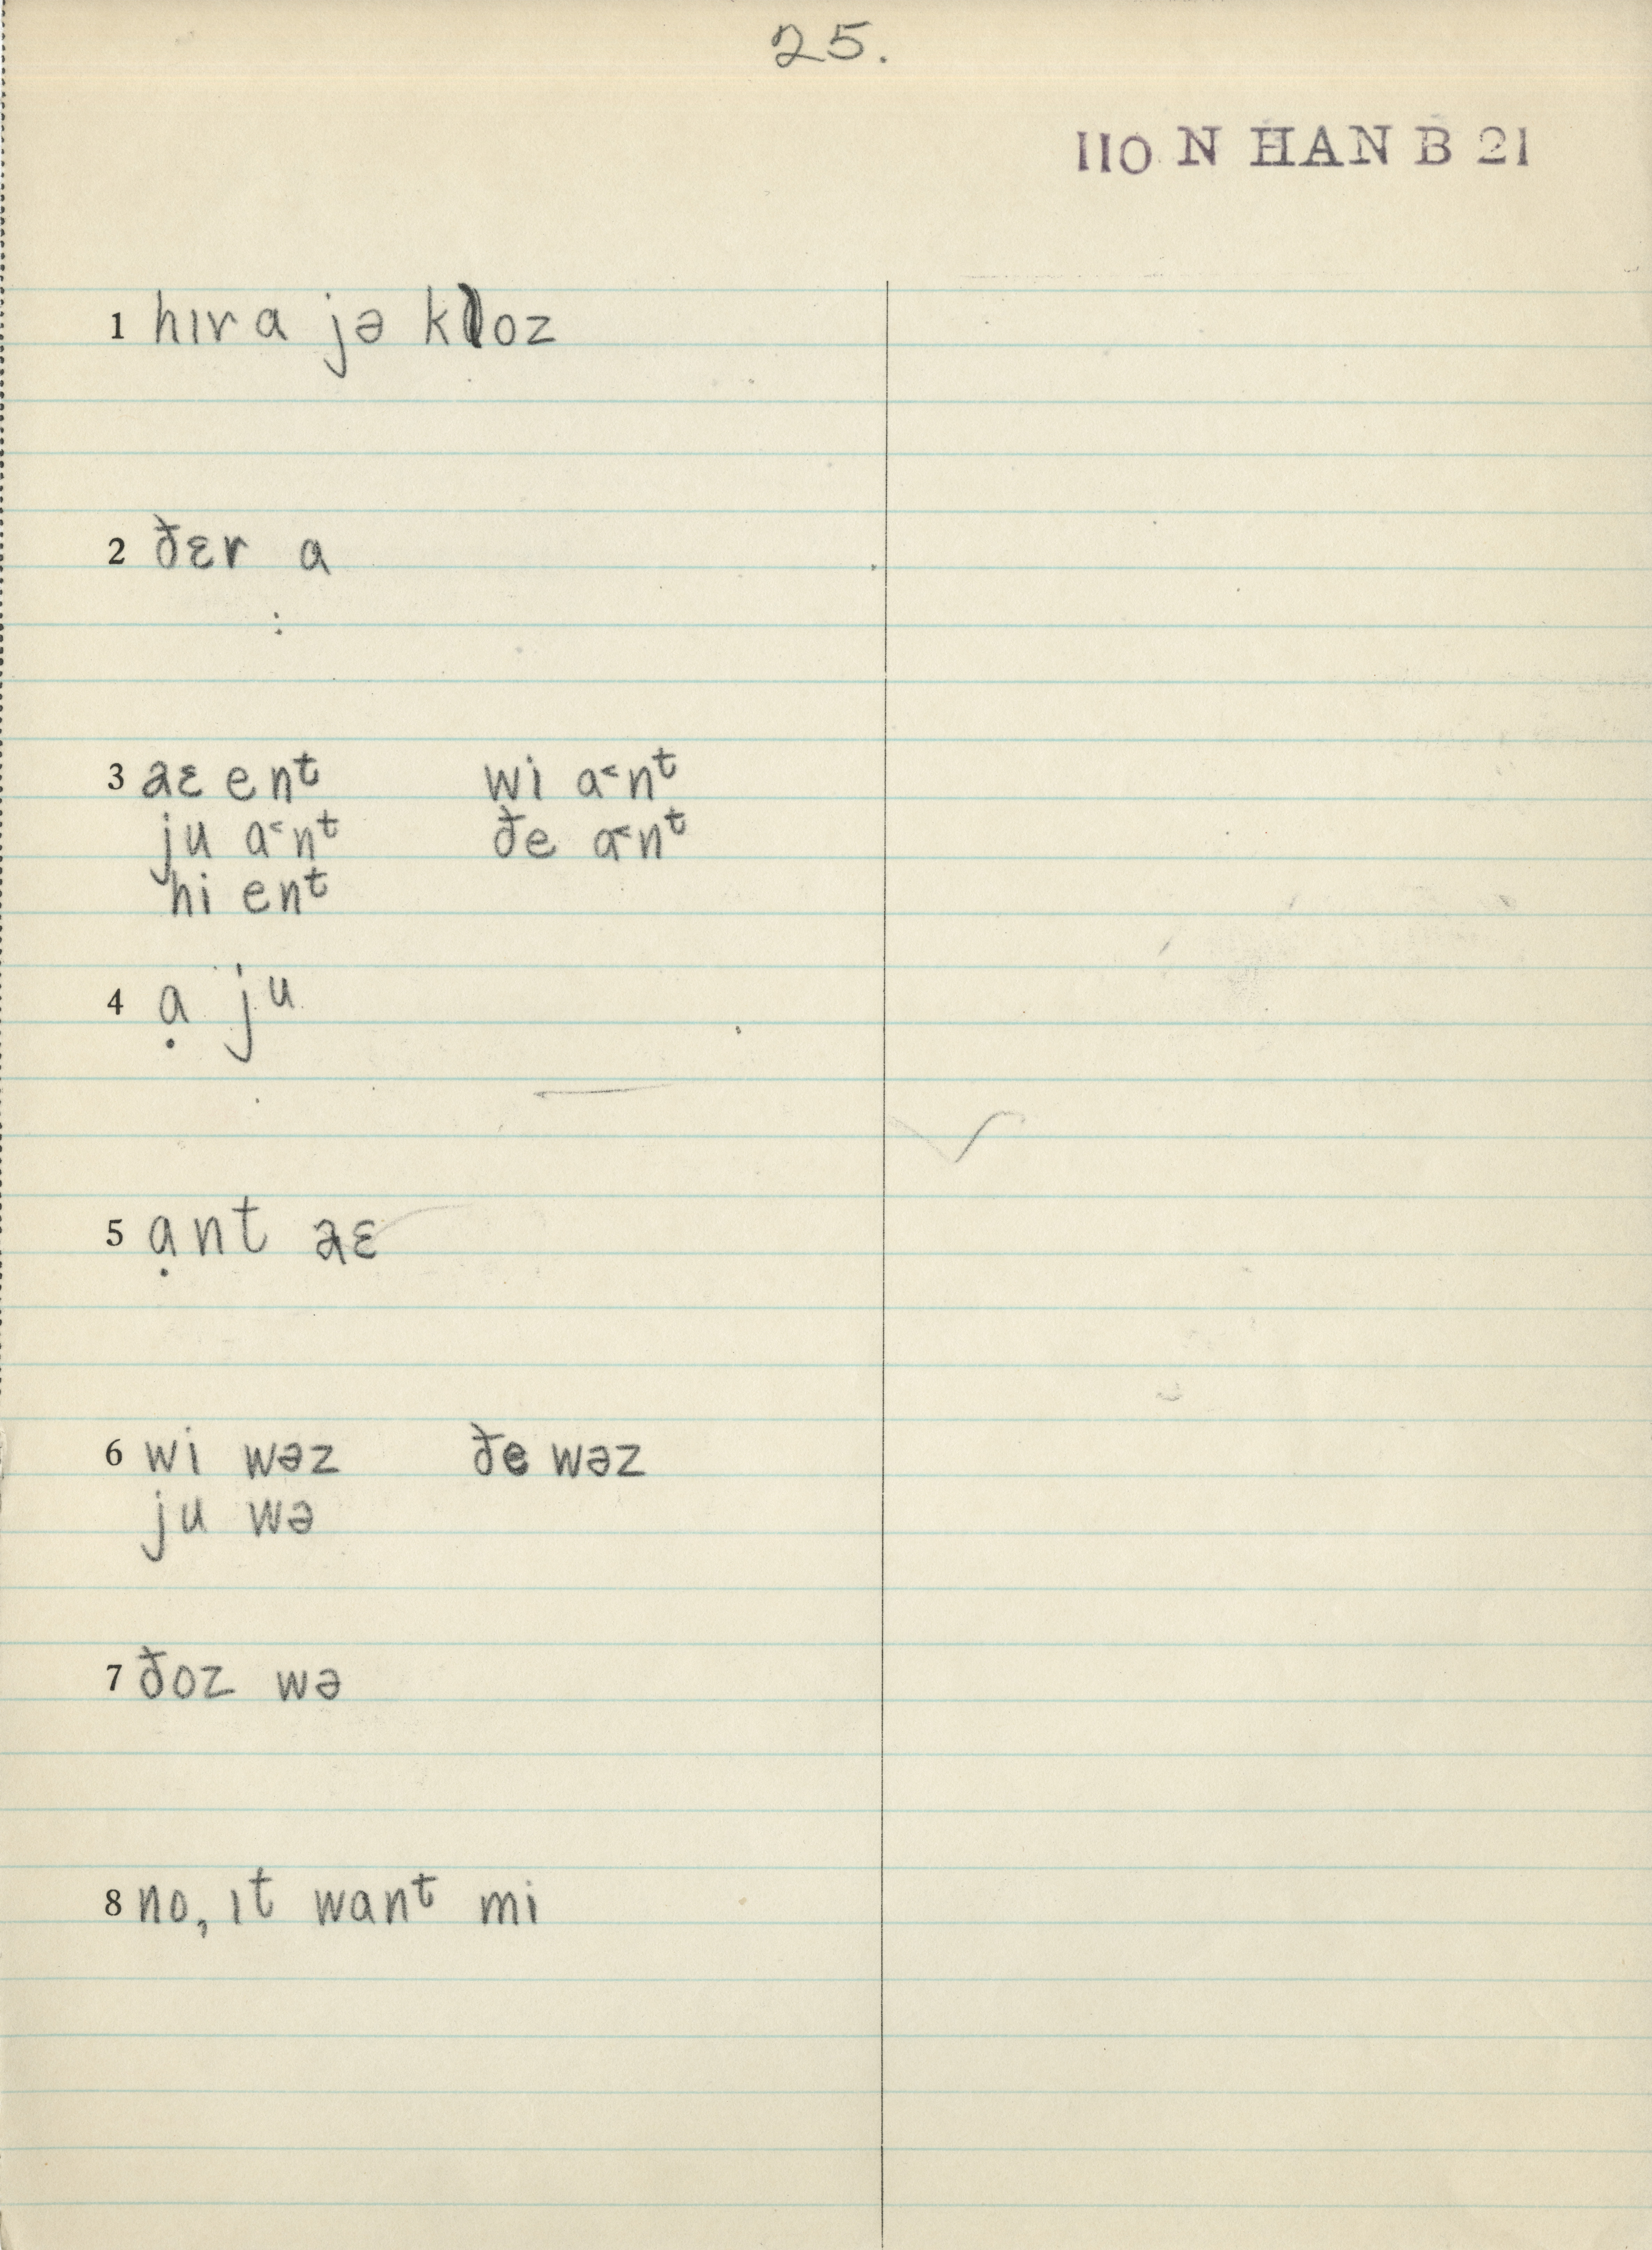 25.
110 N HAN B 21
1 hɪr a jə kloz
2 ðɛr a
3 aɛ enᵗ wi a˂nᵗ
ju a˂nᵗ ðe a˂nᵗ
hi enᵗ
4 ạ ju
5 ạnt aɛ
6 wi wəz ðe wəz
ju wə
7 ðoz wə
8 no, ɪt wanᵗ mi